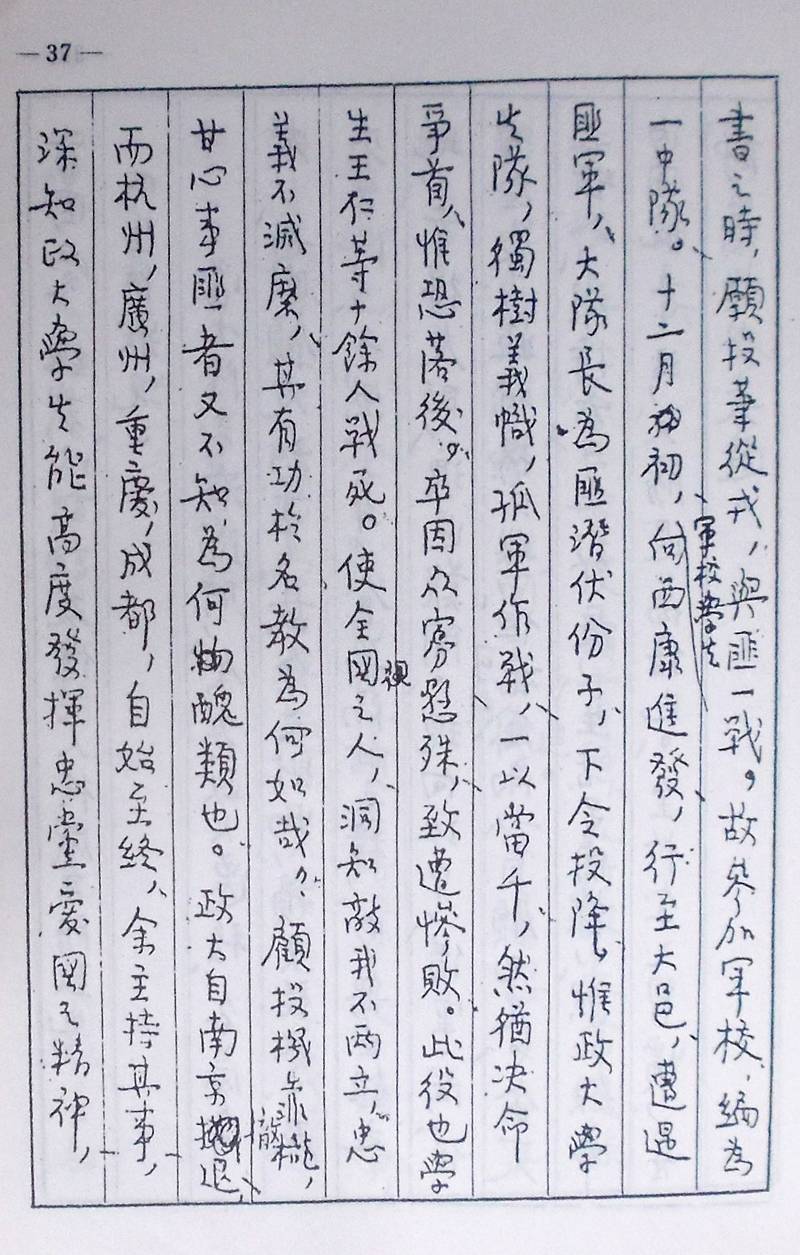 —37—
書之時，願投筆從戎，與匪一戰。故參加軍校，編為
一中隊。十二月初，向西康進發，行至大邑，遭遇
軍校學生
匪軍，大隊長為匪潛伏份子，下令投降，惟政大學
生隊，獨樹義幟，孤軍作戰，一以當千，然猶決命
爭首，惟恐落後。卒因眾寡懸殊，致遭慘敗。此役也學
生王仁等十餘人戰死。使全國之人，洞知敵我不兩立，忠
義不滅廢，其有功於名教為何如哉？顧投機
甘心事匪者又不知為何物醜類也。政大自南京退
而杭州，廣州，重慶，成都，自始至終，余主持其事，
深知政大學生能高度發揮忠黨愛國之精神，